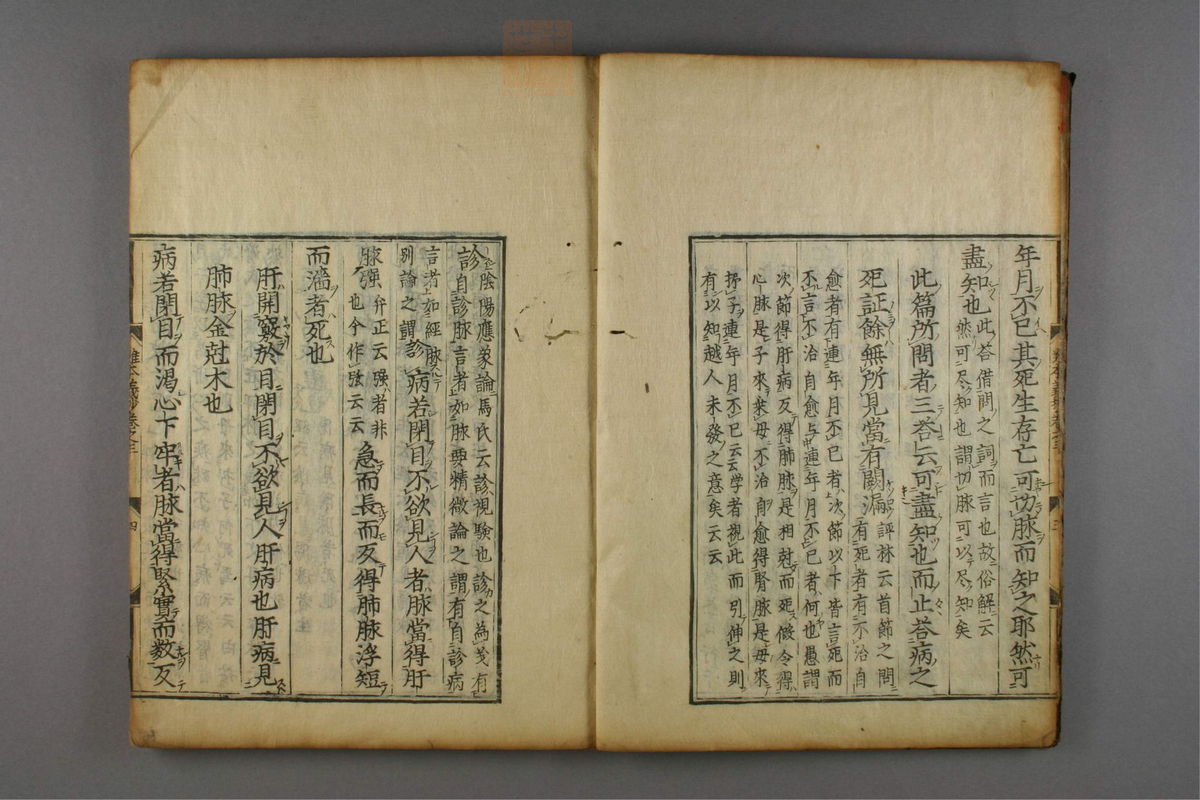 年月不已其死生存亡可切脉而知之耶然可
盡知也此荅借問之詞而言也故俗解云
然可尽知也謂切脉可以尽知矣
此篇所問者三荅云可盡知也而止荅病之
死証餘無所見當有闕漏評林云首節之問
有死者有不治自
愈者有連年月不已者次節以下皆言死而
不言不治自愈与連年月不已者何也愚謂
次節得肝病反得肺脉是相尅而死倣令得
心脉是子來乗母不治自愈得腎脉是母來
抒子連年月不已云云学者視此而引伸之則
有以知越人未發之意矣云云
診陰陽應象論馬氏云診視験也診之為義有
自診脉言者如脉要精微論之謂有自診病
言者如經脉
別論之謂診病若閉目不欲見人者脉當得肝
脉强弁正云强者非
也今作弦云云急而長而反得肺脉浮短
而濇者死也
肝開竅於目閉目不欲見人肝病也肝病見
肺脉金尅木也
病若閉目而渴心下牢者脉當得緊實而數反